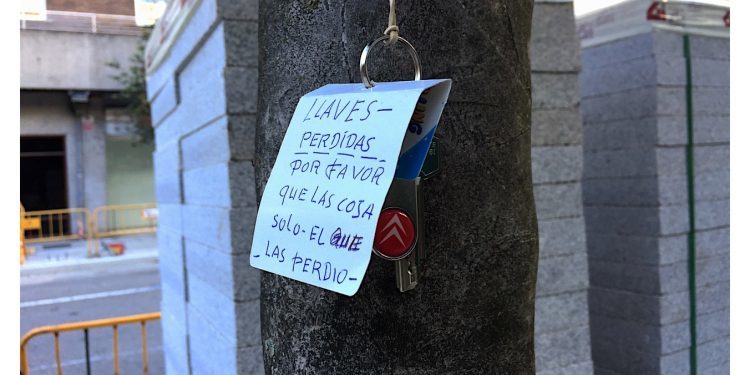 LLAVES-
PERDIDAS
POR FAVOR
QUE LAS COJA
SOLO-EL QUE
-LAS PERDIO-